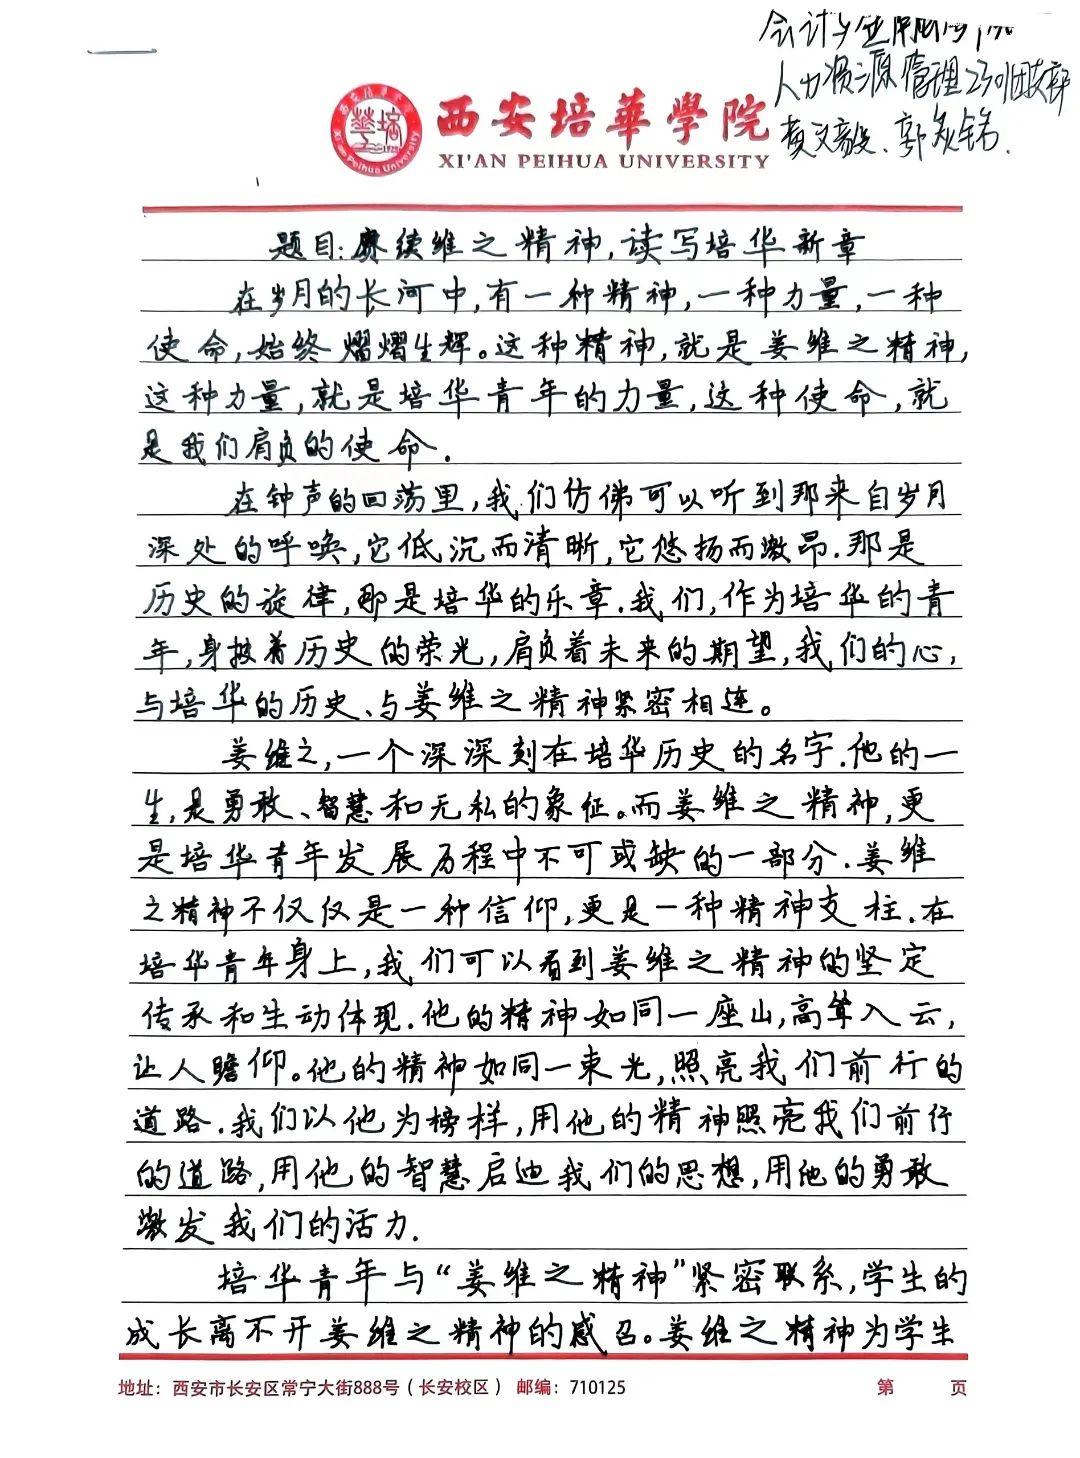 会计与
人力资源管理2301团支部
黄文毅、郭炙铭.
西安培華學院
XI'AN PEIHUA UNIVERSITY
题目:赓续维之精神,读写培华新章
在岁月的长河中,有一种精神,一种力量,一种
使命,始终熠熠生辉。这种精神,就是姜维之精神,
这种力量,就是培华青年的力量,这种使命,就
是我们肩负的使命.
在钟声的回荡里,我们仿佛可以听到那来自岁月
深处的呼唤,它低沉而清晰,它悠扬而激昂.那是
历史的旋律,那是培华的乐章.我们,作为培华的青
年,身披着历史的荣光,肩负着未来的期望,我们的心,
与培华的历史、与姜维之精神紧密相连。
姜维之,一个深深刻在培华历史的名字.他的一
生,是勇敢、智慧和无私的象征。而姜维之精神,更
是培华青年发展历程中不可或缺的一部分.姜维
之精神不仅仅是一种信仰,更是一种精神支柱.在
培华青年身上,我们可以看到姜维之精神的坚定
传承和生动体现.他的精神如同一座山,高耸入云,
让人瞻仰。他的精神如同一束光,照亮我们前行的
道路.我们以他为榜样,用他的精神照亮我们前行
的道路,用他的智慧启迪我们的思想,用他的勇敢
激发我们的活力.
培华青年与“姜维之精神”紧密联系,学生的
成长离不开姜维之精神的感召。姜维之精神为学生
地址：西安市长安区常宁大街888号（长安校区） 邮编：710125 第 页